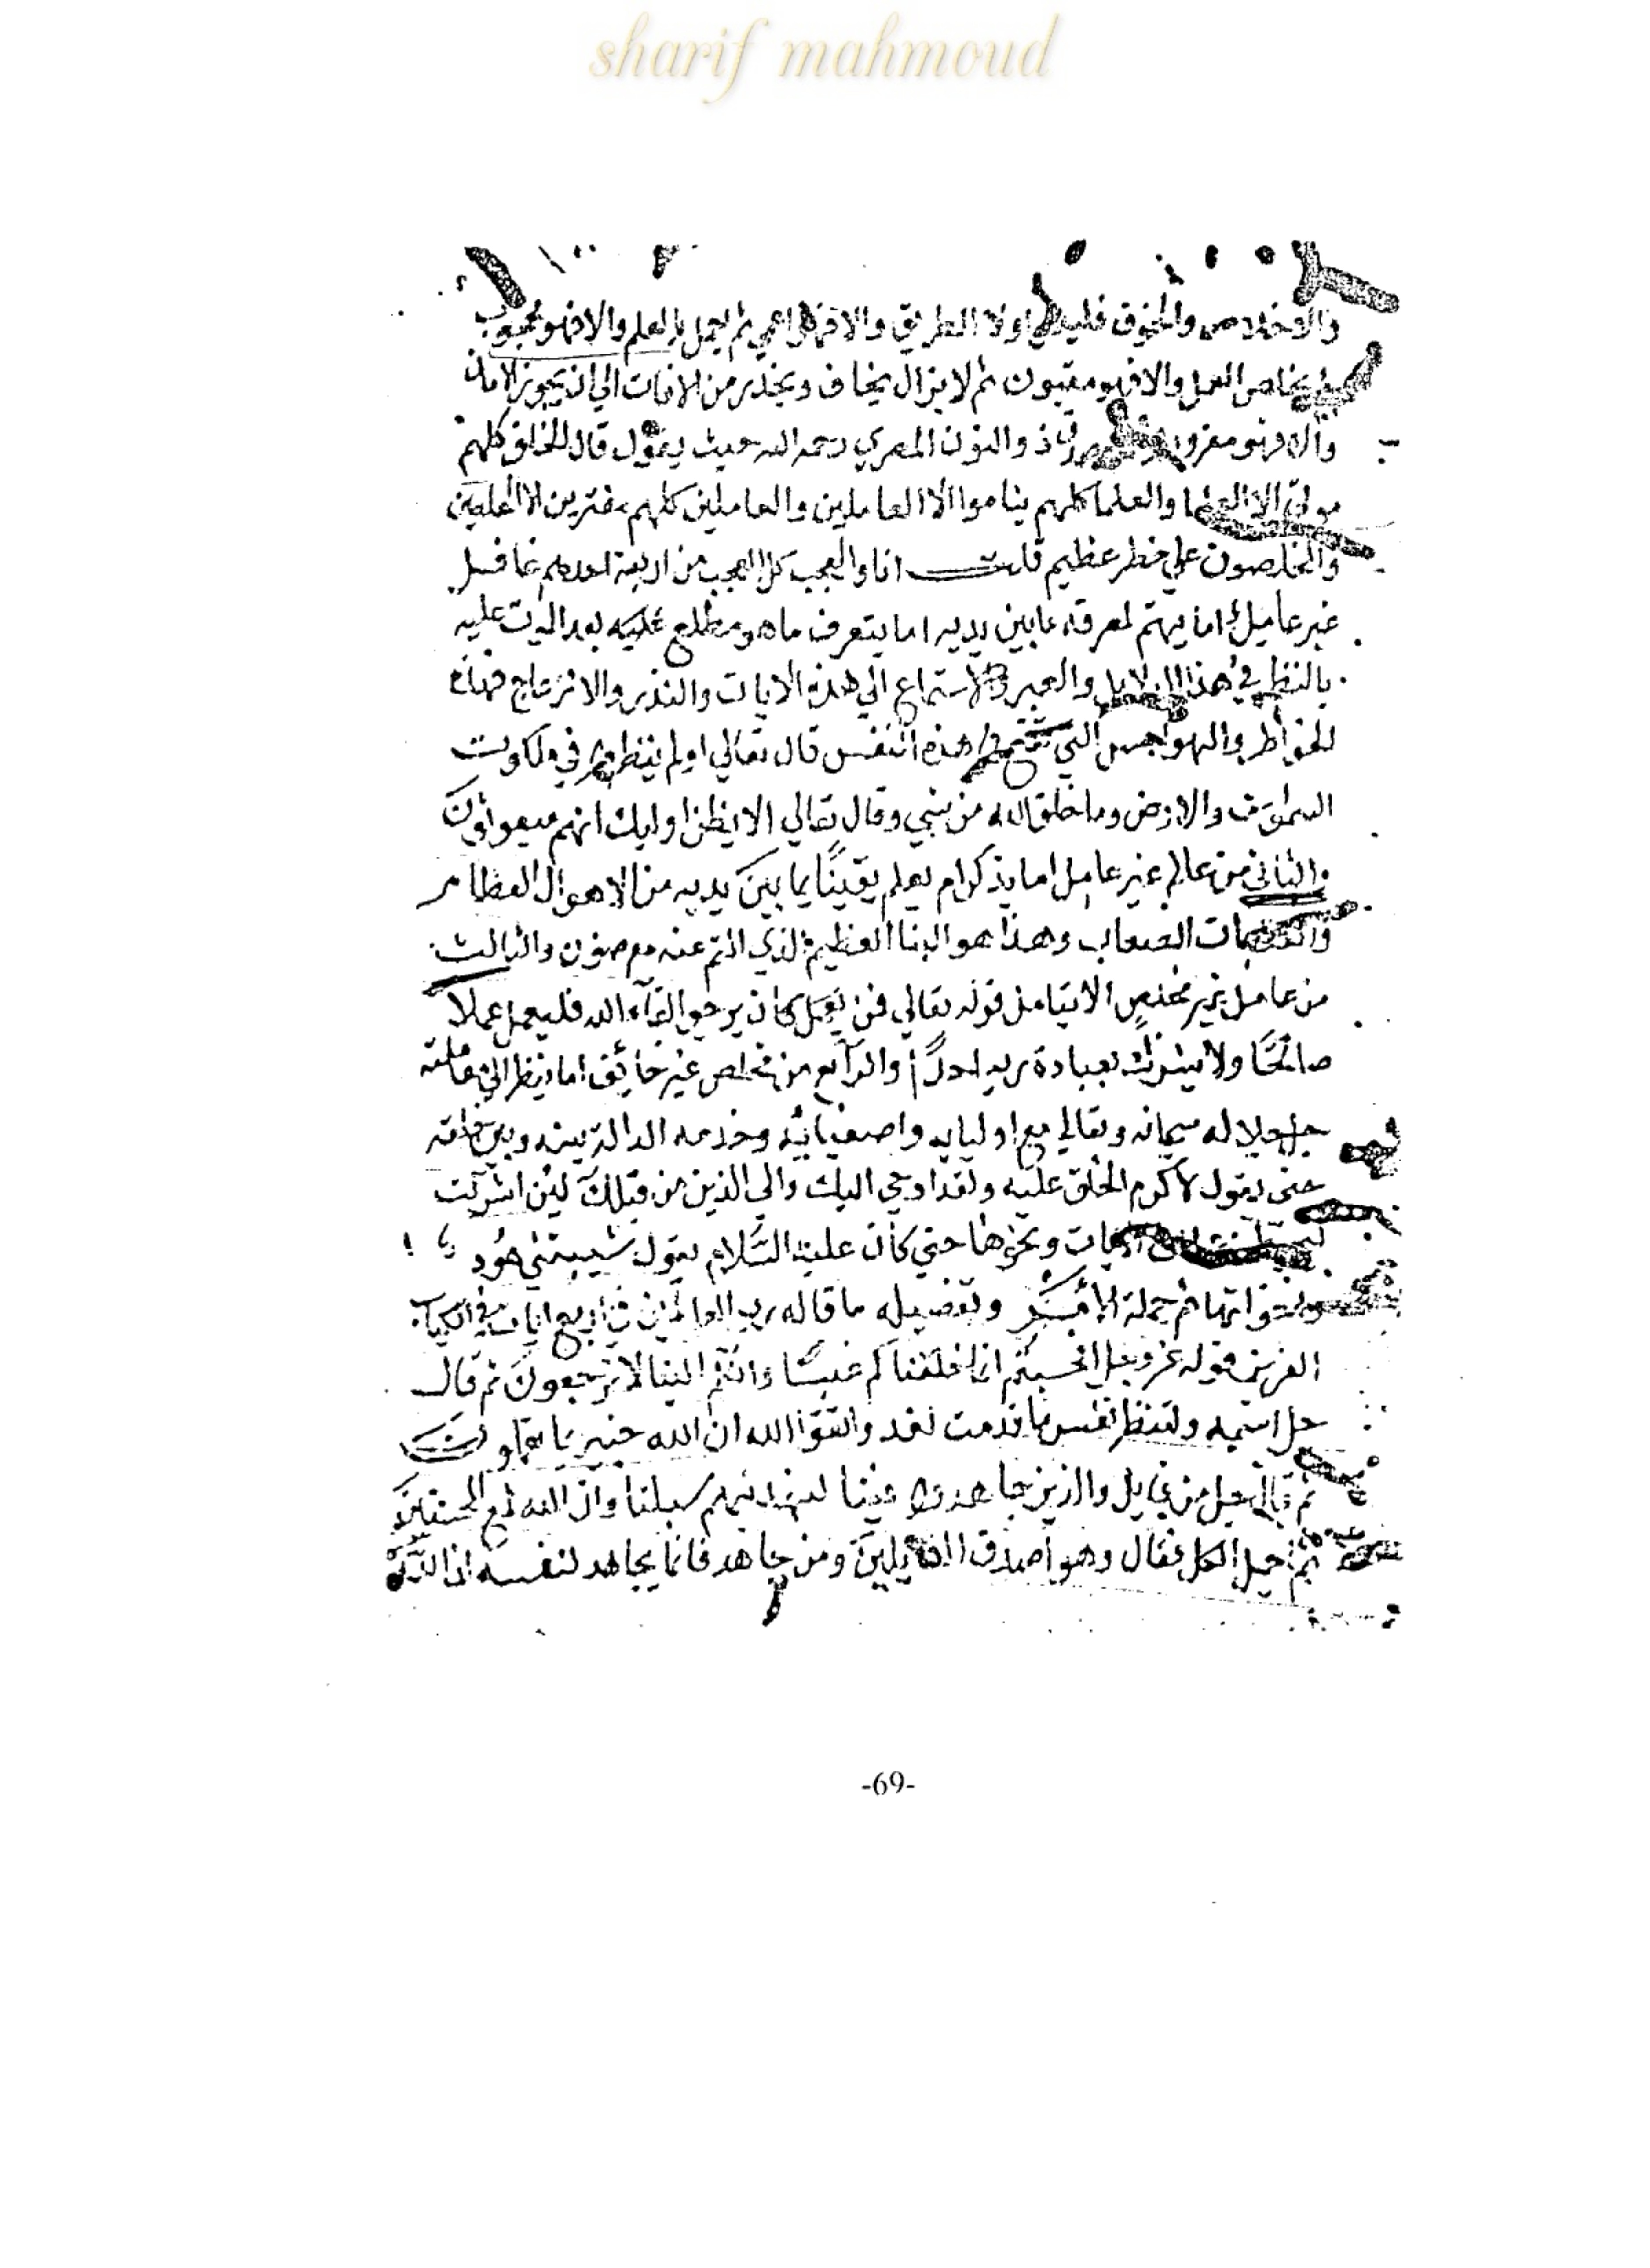 sharif mahmoud
والاخلاص والخوف فليعلم اولا الطريق والا فهو اعمي ثم يعمل بالعلم والا فهو محجوب
ثم يخلص العمل والا فهو مغبون ثم لا يزال يخاف ويحذر من الافات الي ان يجوز الامان
والا فهو مغرور ذو النون المصري رحمه الله حيث يقول قال الخلق كلهم
موتي الا العلما والعلما كلهم ينا موا الا العاملين والعاملين كلهم مغترين الا المخلصين
والمخلصون علي خطر عظيم قلت انا والعجب كل العجب من اربعة احدهم غافل
غير عامل اما يهتم لمعرفة ما بين يديه اما يتعرف ما هو مطلع عليه بعد الموت عليه
بالنظر في هذا الدلايل والعبر والاستماع الي هذه الايات والنذر والانزعاج فهذه
للخواطر والهواجس التي هذه النفس قال تعالي اولم ينظروا في ملكوت
السموت والارض وما خلق الله من شي وقال تعالي الا يظن اوليك انهم مبعوثون
والثاني من عالم غير عامل اما يذكر ام يعلم يقينًا بما بين يديه من الاهوال العظام
والعقبات الصعاب وهذا هو النبا العظيم الذي انتم عنه معرضون والثالث
من عامل غير مخلص الا يتامل قوله تعالي فمن كان يرجوا لقآء الله فليعمل عملا
صالحًا ولا يشرك بعبادة ربه احدًا والرابع من مخلص غير خائف اما ينظر الي معاملته
جل جلاله سبحانه وتعالي مع اوليايه واصفيائه وخدمه الدالة بينه وبين خلقه
حتي يقول لاكرم الخلق عليه ولقد اوحي اليك والي الذين من قبلك لئن اشركت
ليحبطن الايات ونحوها حتي كان عليه السلام يقول شيبتني هود
واخواتها ثم جملة الامر وتفصيله ما قاله رب العالمين في اربع ايات في الكتاب
العزيز قوله عز وجل افحسبتم انما خلقناكم عبثًا وانكم الينا لا ترجعون ثم قال
جل اسمه ولتنظر نفس ما قدمت لغد واتقوا الله ان الله خبير بما تعملون
ثم قال جل من قايل والذين جاهدوا فينا لنهدينهم سبلنا وان الله لمع المحسنين
ثم اجمل الكل فقال وهو اصدق القايلين ومن جاهد فانما يجاهد لنفسه ان الله
-69-